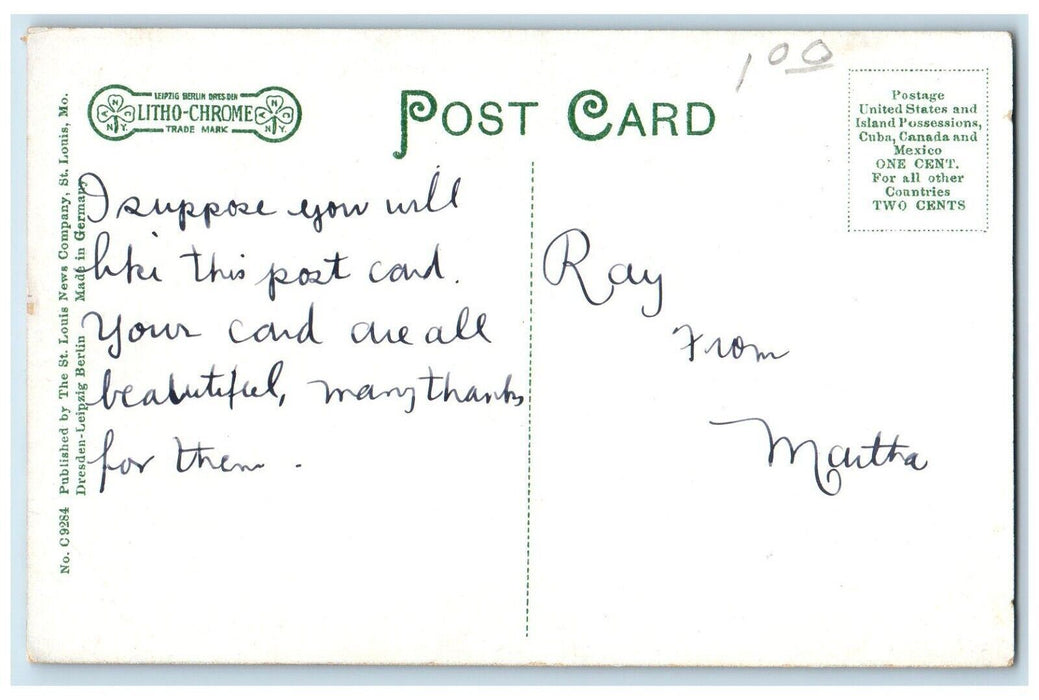 1 00
LEIPZIG BERLIN DRESDEN
LITHO-CHROME
TRADE MARK
POST CARD
Postage
United States and
Island Possessions,
Cuba, Canada and
Mexico
ONE CENT.
For all other
Countries
TWO CENTS
I suppose you will
like this post card.
Your card are all
beautiful, many thanks
for them.
Ray
From
Martha
No. C 9284 Published by The St. Louis News Company, St. Louis, Mo.
Dresden-Leipzig Berlin Made in Germany